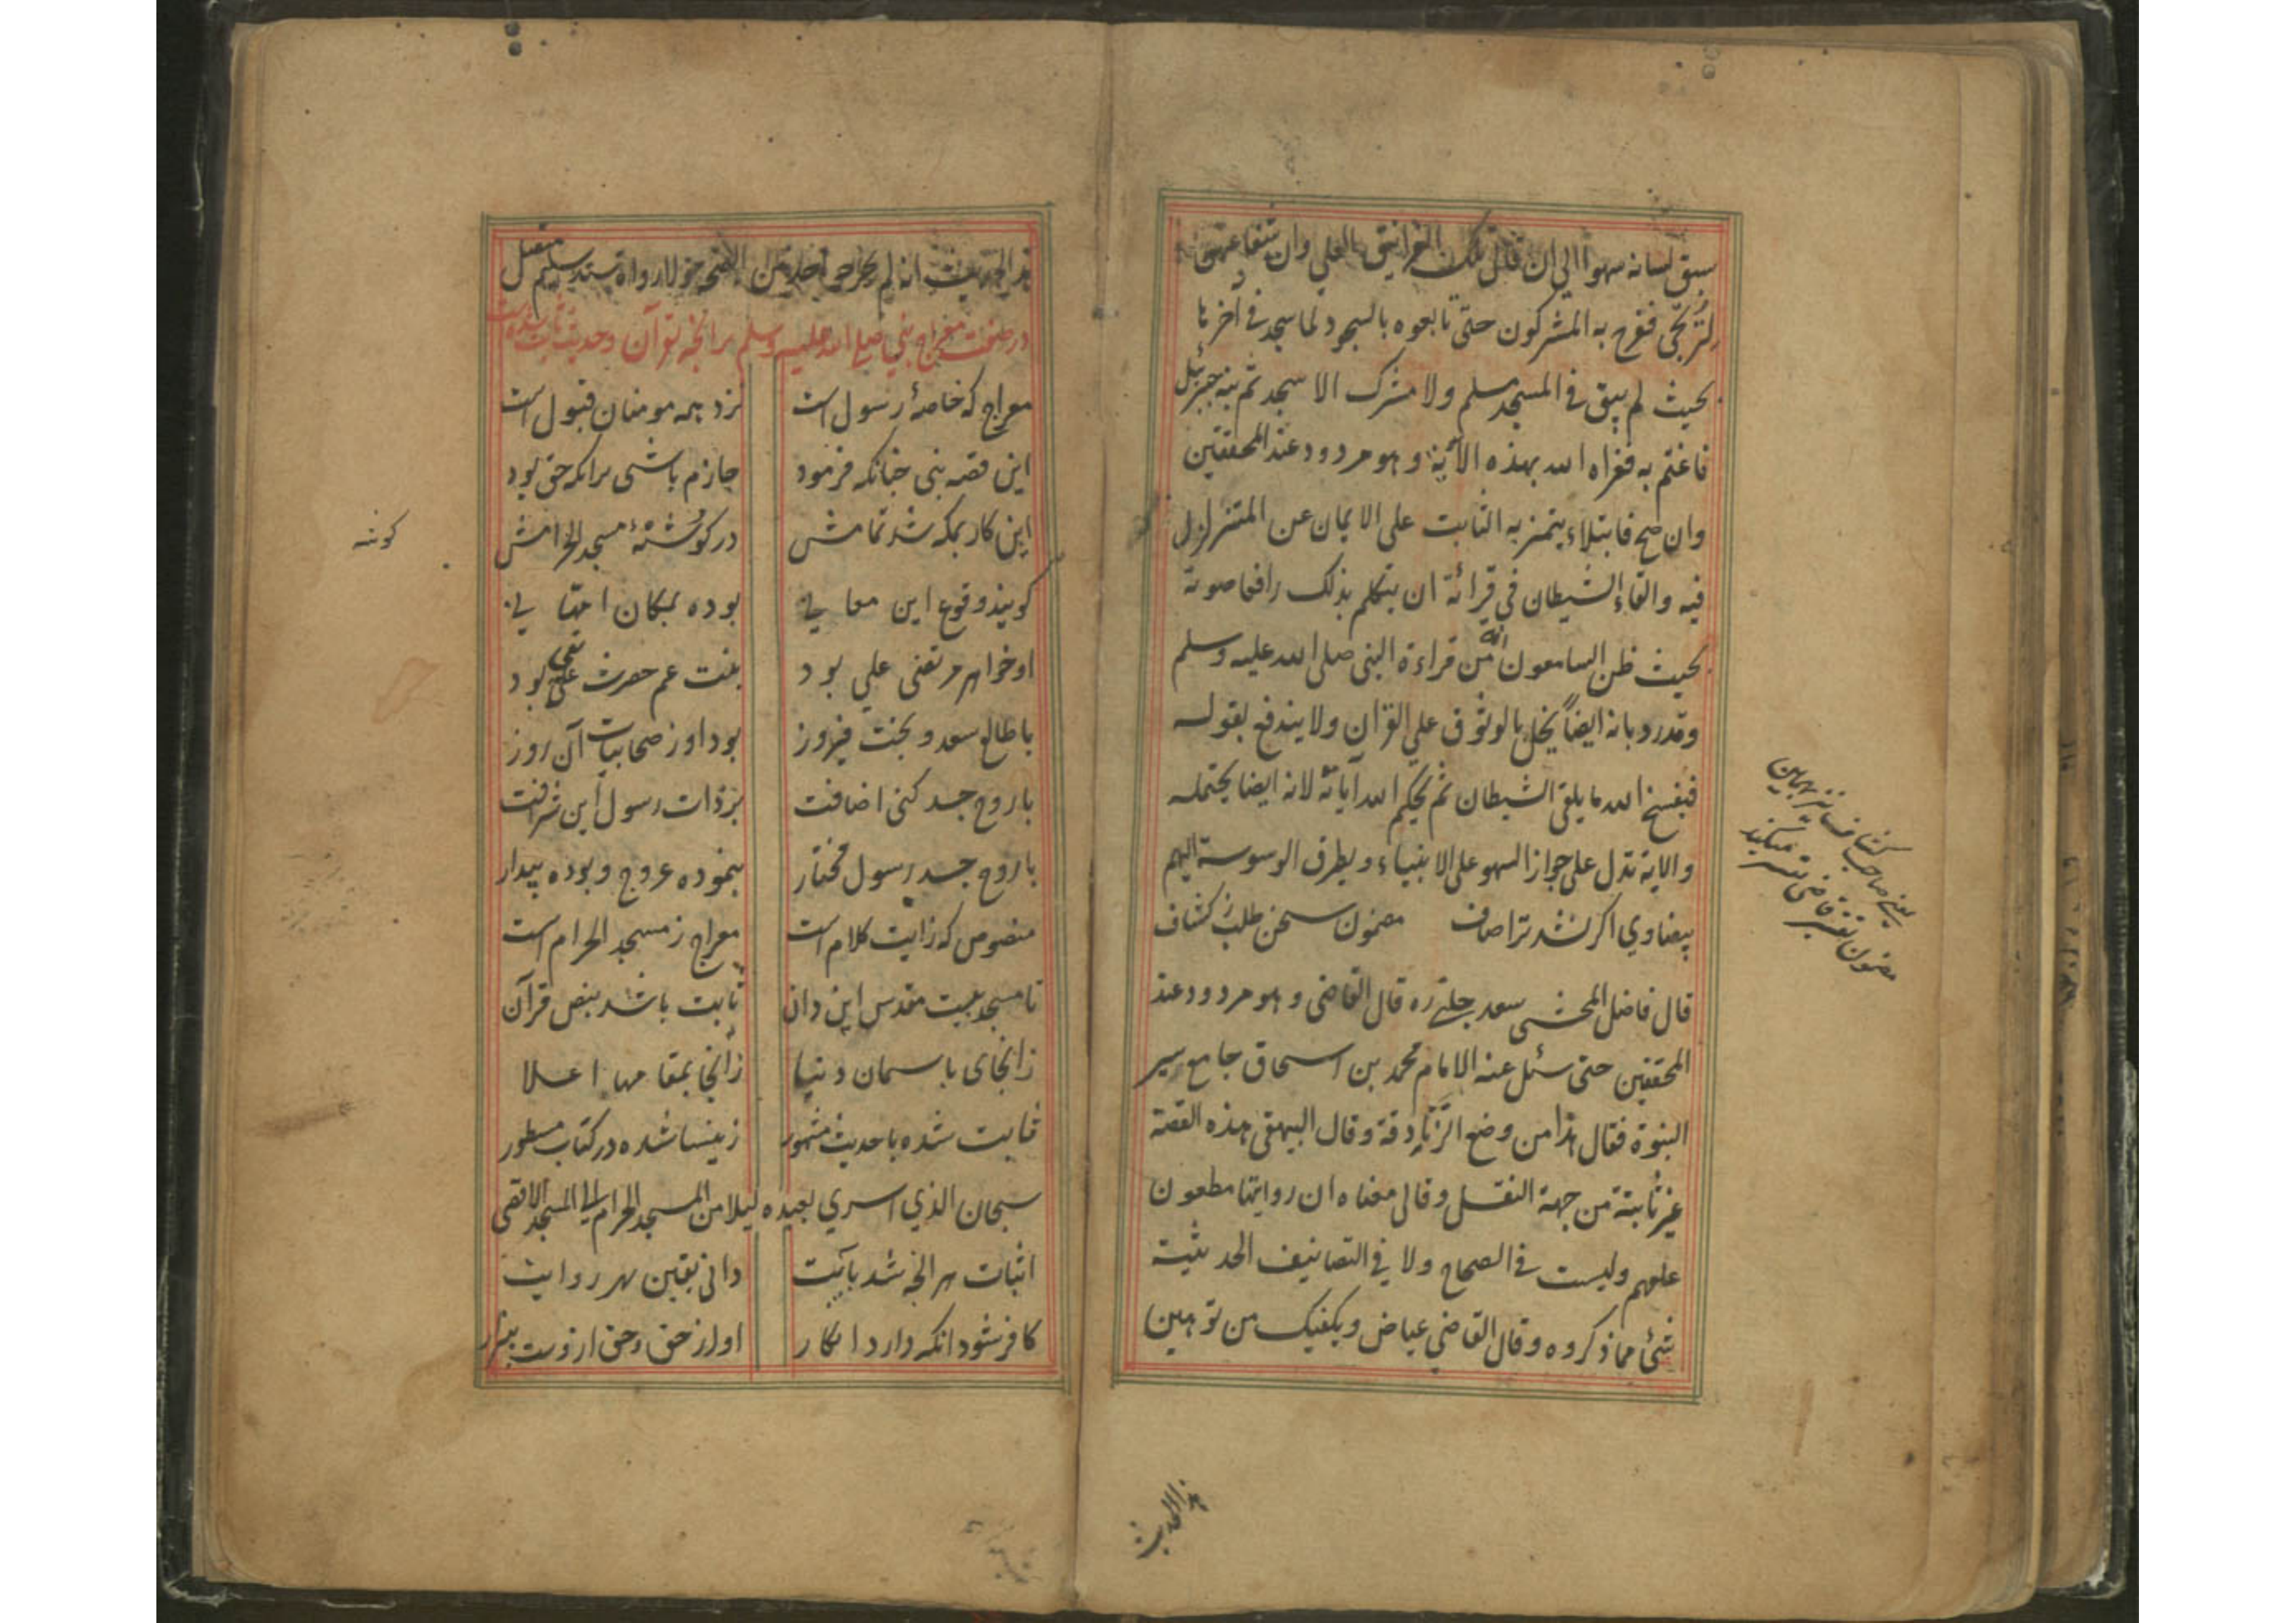 سبق لسانه سهوا الی ان قال تلک الغرانیق العلی وان شفاعتهن
لترتجی ففرح به المشرکون حتی تابعوه بالسجود لما سجد فی آخرها
بحیث لم یبق فی المسجد مسلم ولا مشرک الا سجد ثم نبه جبرئیل
فاغتم به فعزاه الله بهذه الآیة وهو مردود عند المحققین
وان صح فابتلاء یتمیز به الثابت علی الایمان عن المتزلزل
فیه والقاء الشیطان فی قرائة ان یتکلم بذلک رافعا صوته
بحیث ظن السامعون انه من قراءة النبی صلی الله علیه وسلم
وقد رد بانه ایضاً یخل بالوثوق علی القرآن ولا یندفع بقوله
فینسخ الله ما یلقی الشیطان ثم یحکم الله آیاته لانه ایضا یحتمله
والایة تدل علی جواز السهو علی الانبیاء ویطرق الوسوسة الیهم
بیضاوی اکر نشد ترا صاف مضمون سخن طلب ز کشاف
قال فاضل المحشی سعد چلپی ره قال القاضی وهو مردود عند
المحققین حتی سئل عنه الامام محمد بن اسحاق جامع سیر
النبوة فقال هذا من وضع الزنادقة وقال البیهقی هذه القصة
غیر ثابتة من جهة النقل وقال معناه ان رواتها مطعون
علیهم ولیست فی الصحاح ولا فی التصانیف الحدیثیة
شئ مما ذکروه وقال القاضی عیاض ویکفیک من توهین
یعنی صاحب کشاف نیز همین
مضمون تفسیر قاضی تفسیر میکند
هذا الحدیث
هذا الحدیث انه لم یخرجه احد من اهل الصحة ولا رواه بسند سلیم متصل
در صفت معراج نبی صلی الله علیه وسلم بر انچه بقرآن وحدیث ثابت شده است
معراج که خاصهٔ رسول است نزد همه مومنان قبول است
این قصه نبی چنانکه فرمود جازم باشی برانکه حق بود
این کار بمکه شد تمامش در کوشهٔ مسجد الحرامش
کویند وقوع این معانی بوده بمکان امهانی
او خواهر مرتضی علی بود بنت عم حضرت نبی بود
با طالع سعد و بخت فیروز بود او ز صحابیات آن روز
با روح جسد کنی اضافت بر ذات رسول این شرافت
با روح جسد رسول مختار بنموده عروج و بوده بیدار
منصوص که ز ایت کلام است معراج ز مسجد الحرام است
تا مسجد بیت مقدس این دان ثابت باشد بنص قرآن
زانجای باسمان دنیا زانجا بمقامها اعلا
ثابت شده با حدیث مشهور زینسا شده در کتاب مسطور
سبحان الذی اسری بعبده لیلا من المسجد الحرام الی المسجد الاقصی
اثبات هر انچه شد بآیت دانی بیقین بهر روایت
کافر شود انکه دارد انکار او از حق و حق ازوست بیزار
کوشه